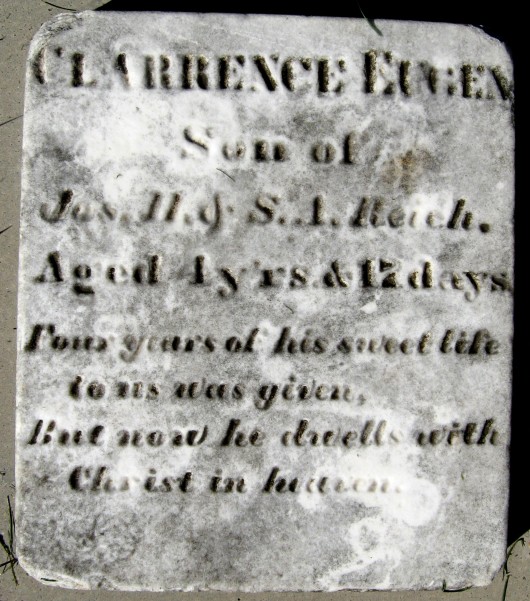 CLARRENCE EUGEN
Son of
Jos. H. & S. A. Reich.
Aged 4 y'rs & 17 days
Four years of his sweet life
to us was given,
But now he dwells with
Christ in heaven.